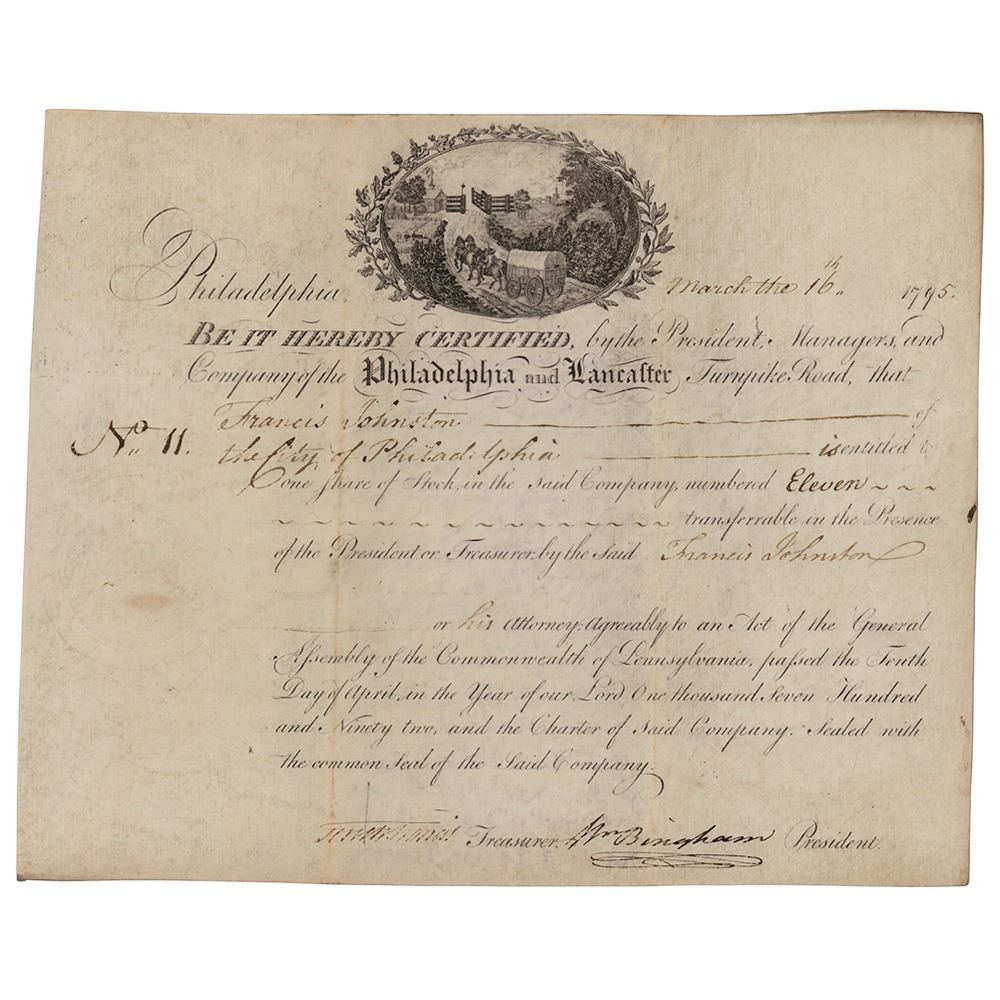 Philadelphia, March the 16th 1795.
BE IT HEREBY CERTIFIED, by the President, Managers, and
Company of the Philadelphia and Lancaster Turnpike Road, that
Francis Johnston of
No. 11. the City of Philadelphia is entitled to
one Share of Stock, in the said Company, numbered Eleven
transferrable in the Presence
of the President or Treasurer by the Said Francis Johnston
or his Attorney, Agreeably to an Act of the General
Assembly of the Commonwealth of Pennsylvania, passed the Tenth
Day of April, in the Year of our Lord One thousand Seven Hundred
and Ninety two, and the Charter of Said Company. Sealed with
the common Seal of the Said Company.
Treasurer. Wm Bingham President.